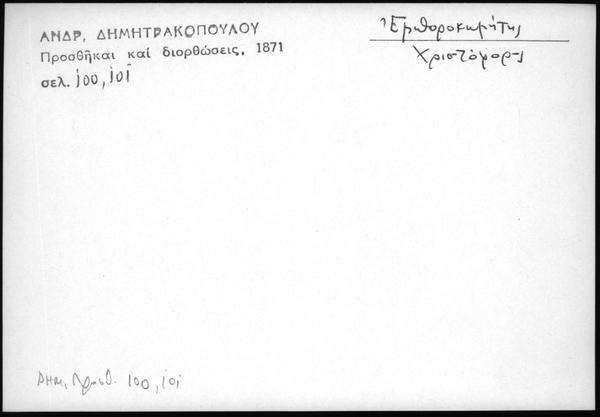 ΑΝΔΡ, ΔΗΜΗΤΡΑΚΟΠΟΥΛΟΥ
Προσθῆκαι καί διορθώσεις, 1871
σελ. 100, 101
Χριστόφορος
Δημ, Προσθ. 100, 101